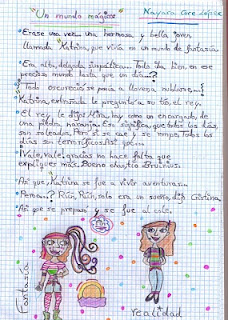 Un mundo mágico
Nayara Core López
• Erase una vez una hermosa y bella joven
llamada Katrina, que vivía en un mundo de fantasía
• Era alta, delgada simpática... Todo iba bien, en ese
precioso mundo hasta que un día...?
¡Todo oscureció se puso a llover, a nublarse...!
Katrina, extrañada le preguntó a su tío, el rey.
• El rey le dijo: Mira hay como un encargado, de
una pelota naranja. Esa significa, que todos los días,
son soleados, Pero si se cae y se rompe, Todos los
días son terroríficos. Así que...
¡Vale, vale! gracias no hace falta que
expliques más. Bueno chao, tío
• Así que, Katrina se fue a vivir aventuras.
• Pero... ? Riin, Riin, solo era un sueño, dijo Cristina.
• Así que se preparó y se fue al cole.
Fantasía
realidad